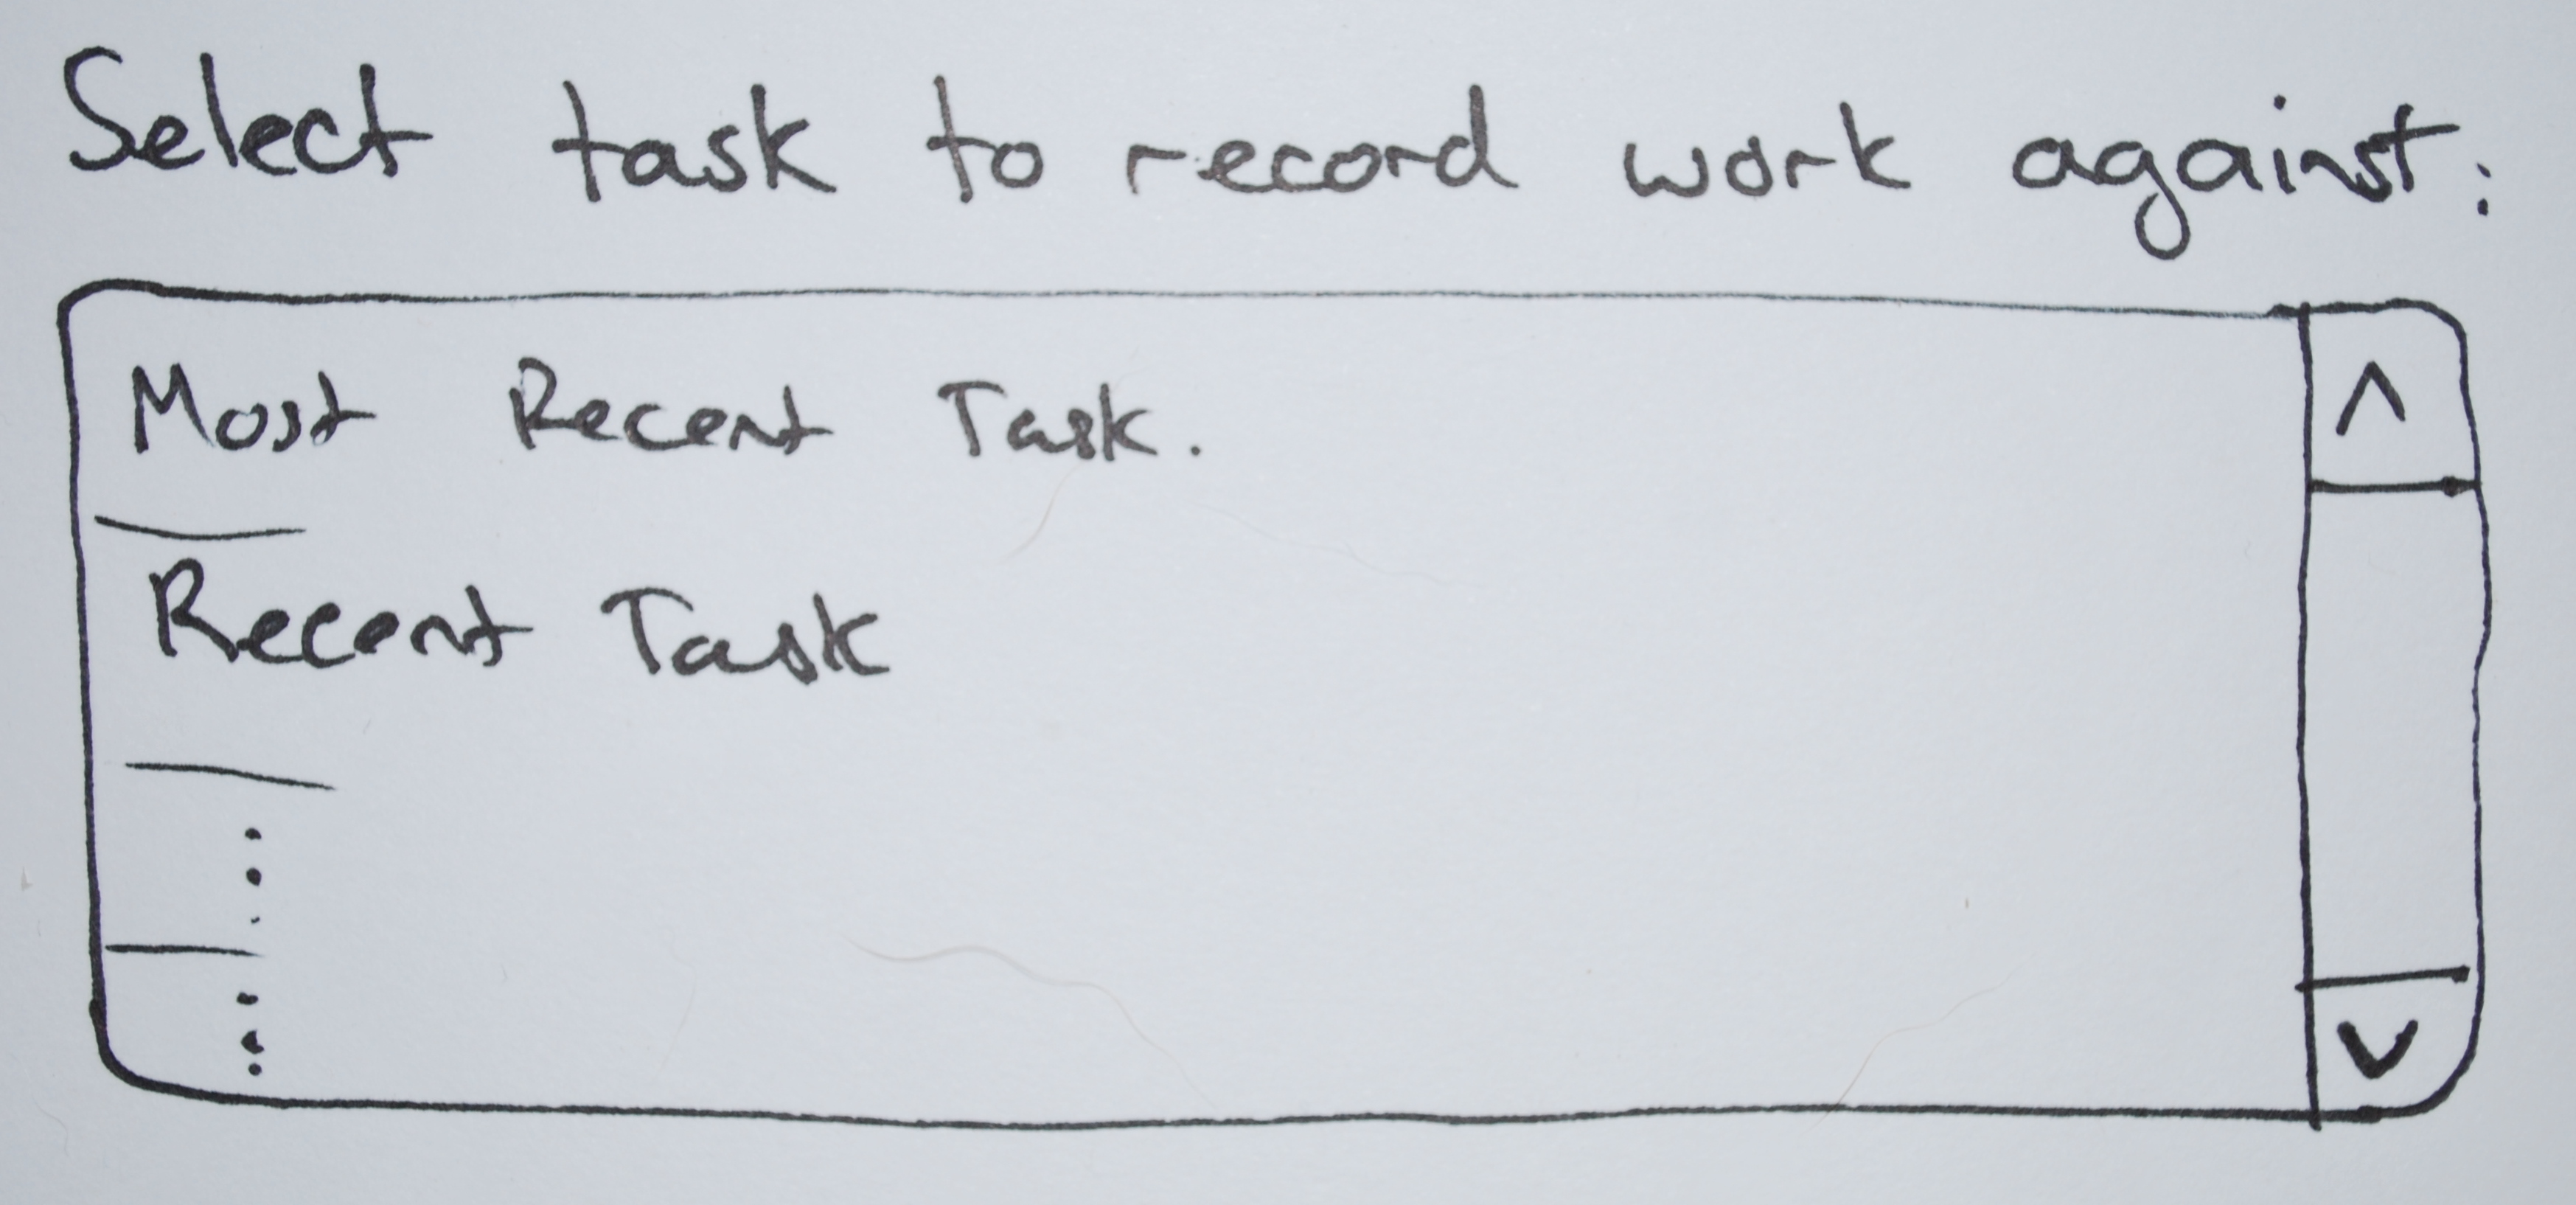 Select task to record work against:
Most Recent Task.
Recent Task